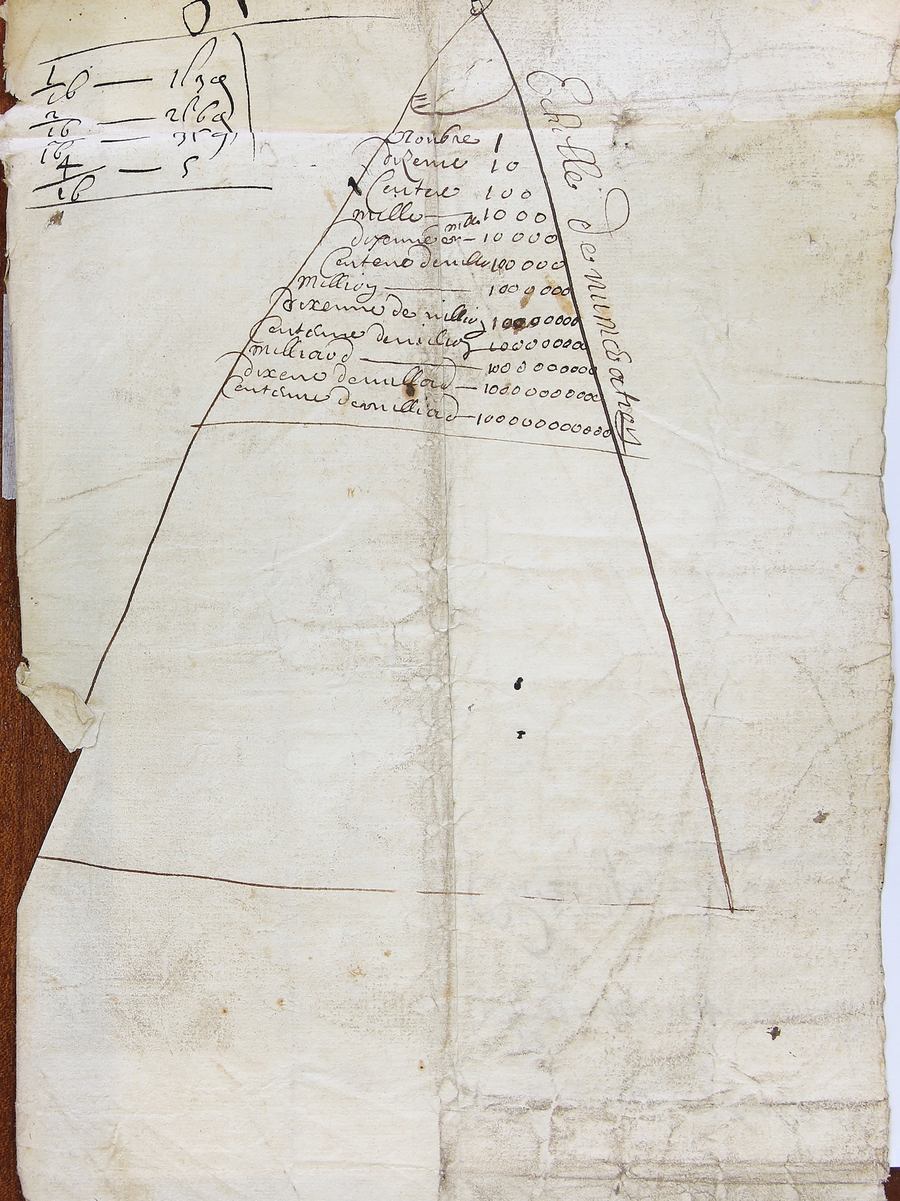 1/16 — 1 l 3 q
2/16 — 2 l 6 q
3/16 — 3 l 9
4/16 — 5
Echelle de numeration
Nombre 1
dixeme 10
Centene 100
mille — 1000
dixenne de mille — 10000
Centene de mille 100000
Million — 1000000
Dixenne de million 10000000
Centenne de million 100000000
Milliard — 1000000000
dixene de milliard — 10000000000
Centenne de milliard — 100000000000